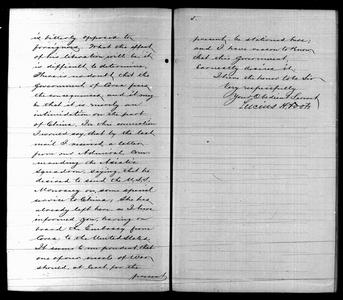 is bitterly opposed to
foreigners. What the effect
of his liberation will be it
is difficult to determine.
There is no doubt that the
Government of Corea fears
the consequences, and it may
be that it is merely an
intimidation on the part
of China. In this connection
I would say, that by the last
mail I received a letter
from our Admiral Com-
manding the Asiatic
Squadron saying, that he
desired to send the U.S.S.
Monocacy on some special
service to China; She has
already left here as I have
informed you, having on
board the Embassy from
Corea to the United States.
It seems to me prudent that
one of our vessels of War
should at least for the
present,
5.
presently be stationed here,
and I have reason to know
that this Government,
earnestly desires it.
I have the honor to be Sir
Very respectfully
Your Obedient Servant
Lucius H. Foote